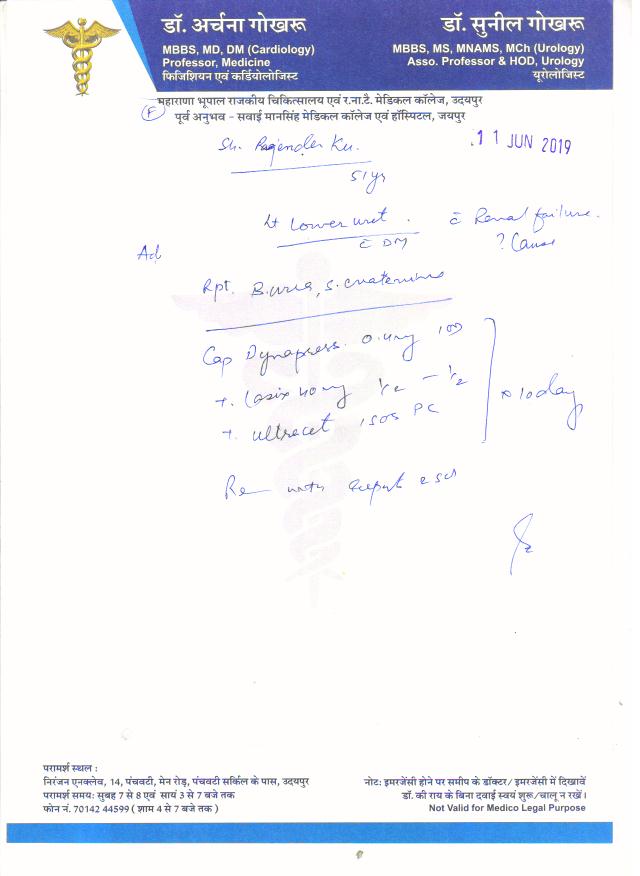 डॉ. अर्चना गोखरू
MBBS, MD, DM (Cardiology)
Professor, Medicine
फिजिशियन एवं कर्डियोलोजिस्ट
डॉ. सुनील गोखरू
MBBS, MS, MNAMS, MCh (Urology)
Asso. Professor & HOD, Urology
यूरोलोजिस्ट
महाराणा भूपाल राजकीय चिकित्सालय एवं र.ना.टै. मेडिकल कॉलेज, उदयपुर
पूर्व अनुभव - सवाई मानसिंह मेडिकल कॉलेज एवं हॉस्पिटल, जयपुर
F
11 JUN 2019
Sh. Rajender Ku.
51 yr
Lt Lower uret. c̄ Renal failure.
c̄ DM ? Cause
Ad
Rpt. B.urea, S. creatinine
Cap Dynapress 0.4mg 1OD
T. Lasix 40mg ½ - ½
T. Ultracet 1 SOS PC
x 10 day
परामर्श स्थल :
निरंजन एनक्लेव, 14, पंचवटी, मेन रोड़, पंचवटी सर्किल के पास, उदयपुर
परामर्श समय: सुबह 7 से 8 एवं सायं 3 से 7 बजे तक
फोन नं. 70142 44599 ( शाम 4 से 7 बजे तक )
नोट: इमरजेंसी होने पर समीप के डॉक्टर/ इमरजेंसी में दिखावें
डॉ. की राय के बिना दवाई स्वयं शुरू/चालू न रखें।
Not Valid for Medico Legal Purpose